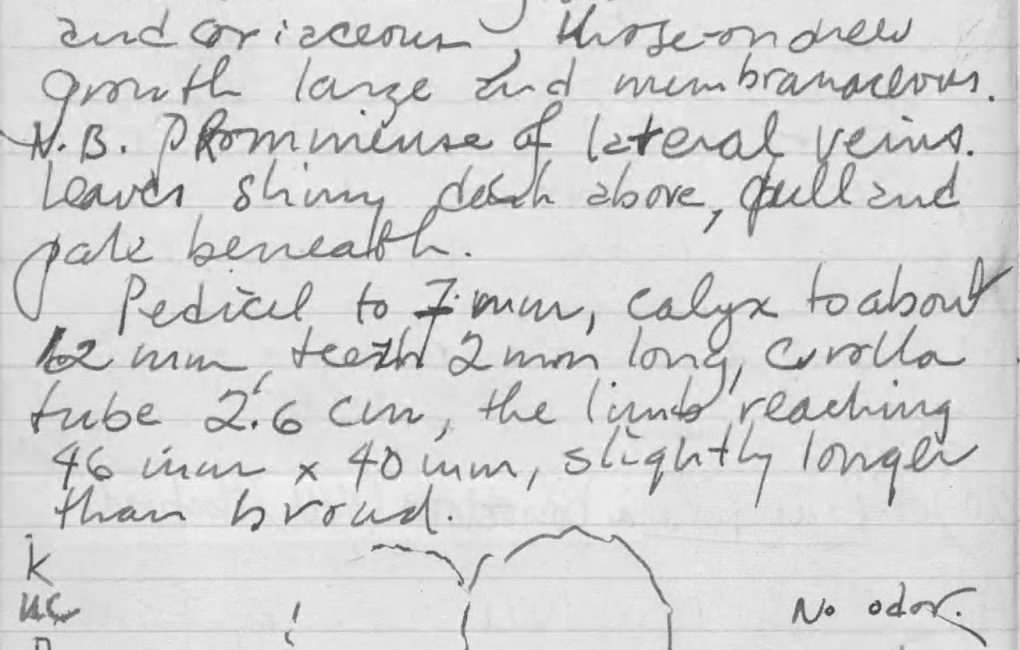 and coriaceous, those on new
growth large and membranaceous.
N.B. Prominense of lateral veins.
Leaves shiny above, dull and
pale beneath.
Pedicel to 7 mm, calyx to about
12 mm, teeth 2 mm long, corolla
tube 2.6 cm, the limb reaching
46 mm x 40 mm, slightly longer
than broad.
K
UC
No odor.